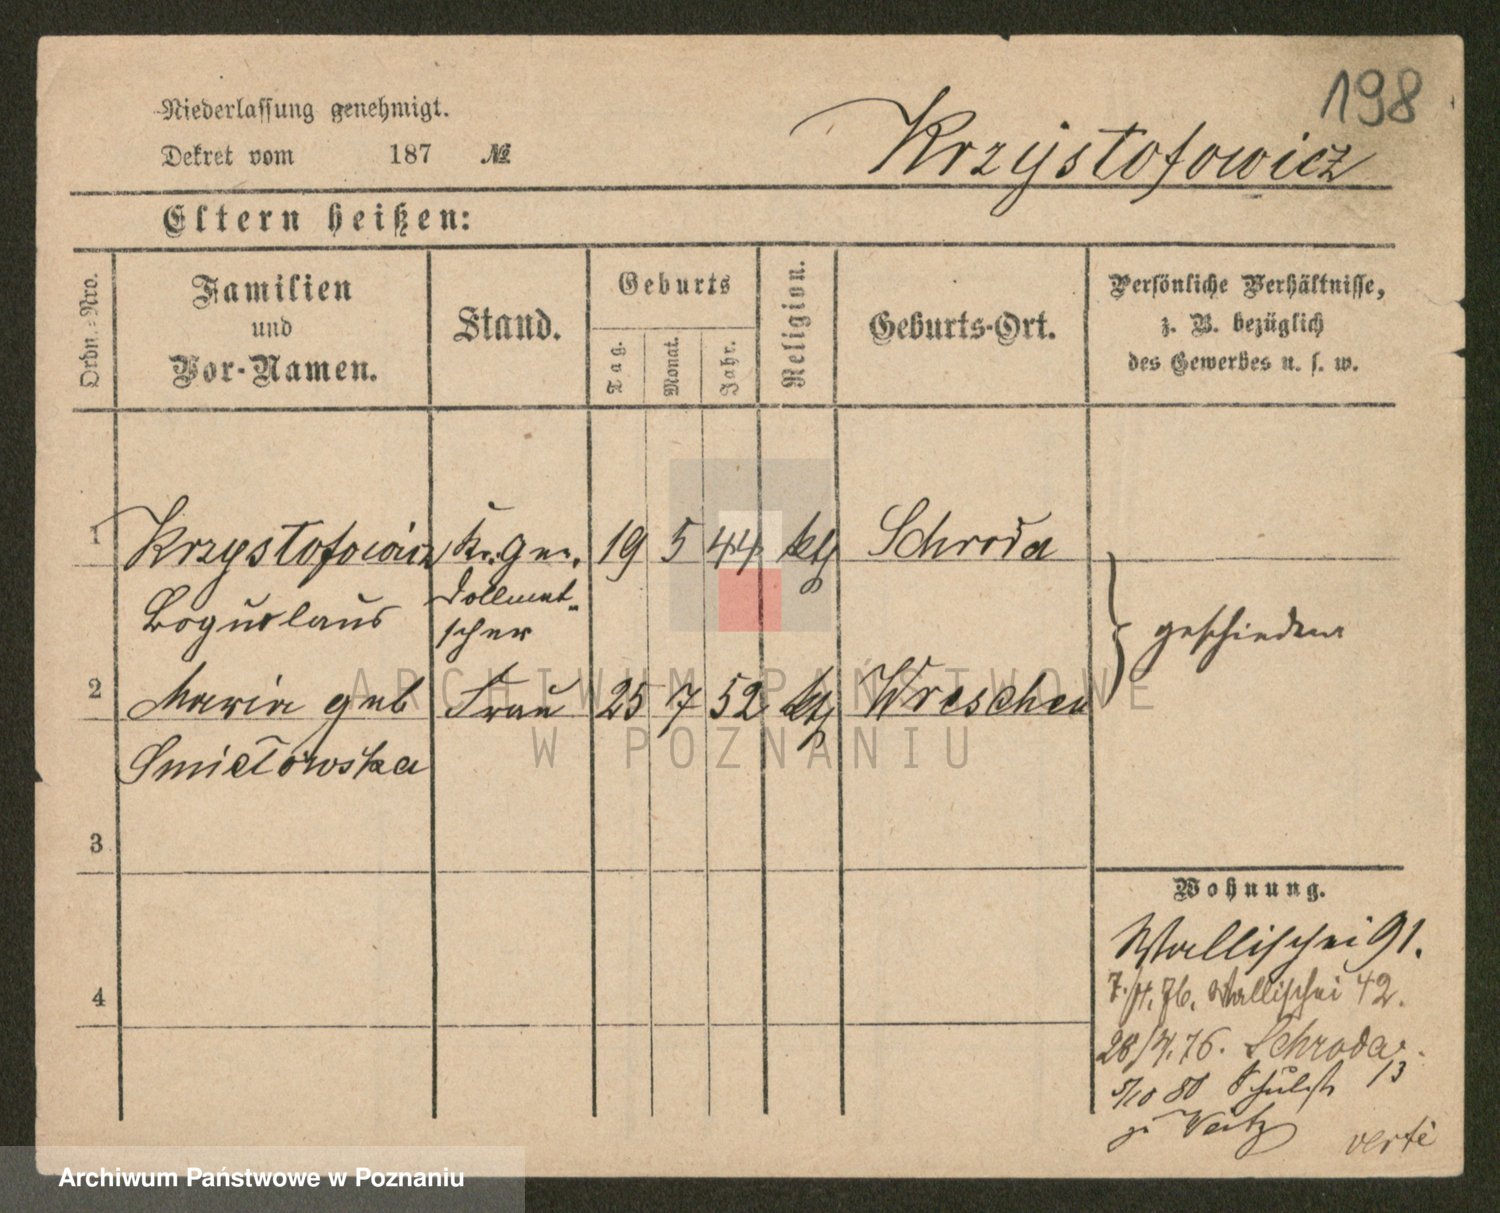 198
Niederlassung genehmigt.
Krzystofowicz
Dekret vom 187 №
Eltern heißen:
Ordn.-Nro.
Familien und Vor-Namen.
Stand.
Geburts
Tag.
Monat.
Jahr.
Religion.
Geburts-Ort.
Persönliche Verhältnisse,
z. B. bezüglich
des Gewerbes u. s. w.
1 Krzystofowicz Kr. Ger. 19 5 44 kth Schroda
Boguslaus Dollmet-
scher
geschieden
2 Maria geb Frau 25 7 52 kth Wreschen
Smiełowska
3
4
Wohnung.
Wallischei 91.
7./4. 76. Wallischei 42.
28/4. 76. Schroda.
5/10 80 Schulstr 13
zu Veitz
verte
ARCHIWUM PAŃSTWOWE
W POZNANIU
Archiwum Państwowe w Poznaniu